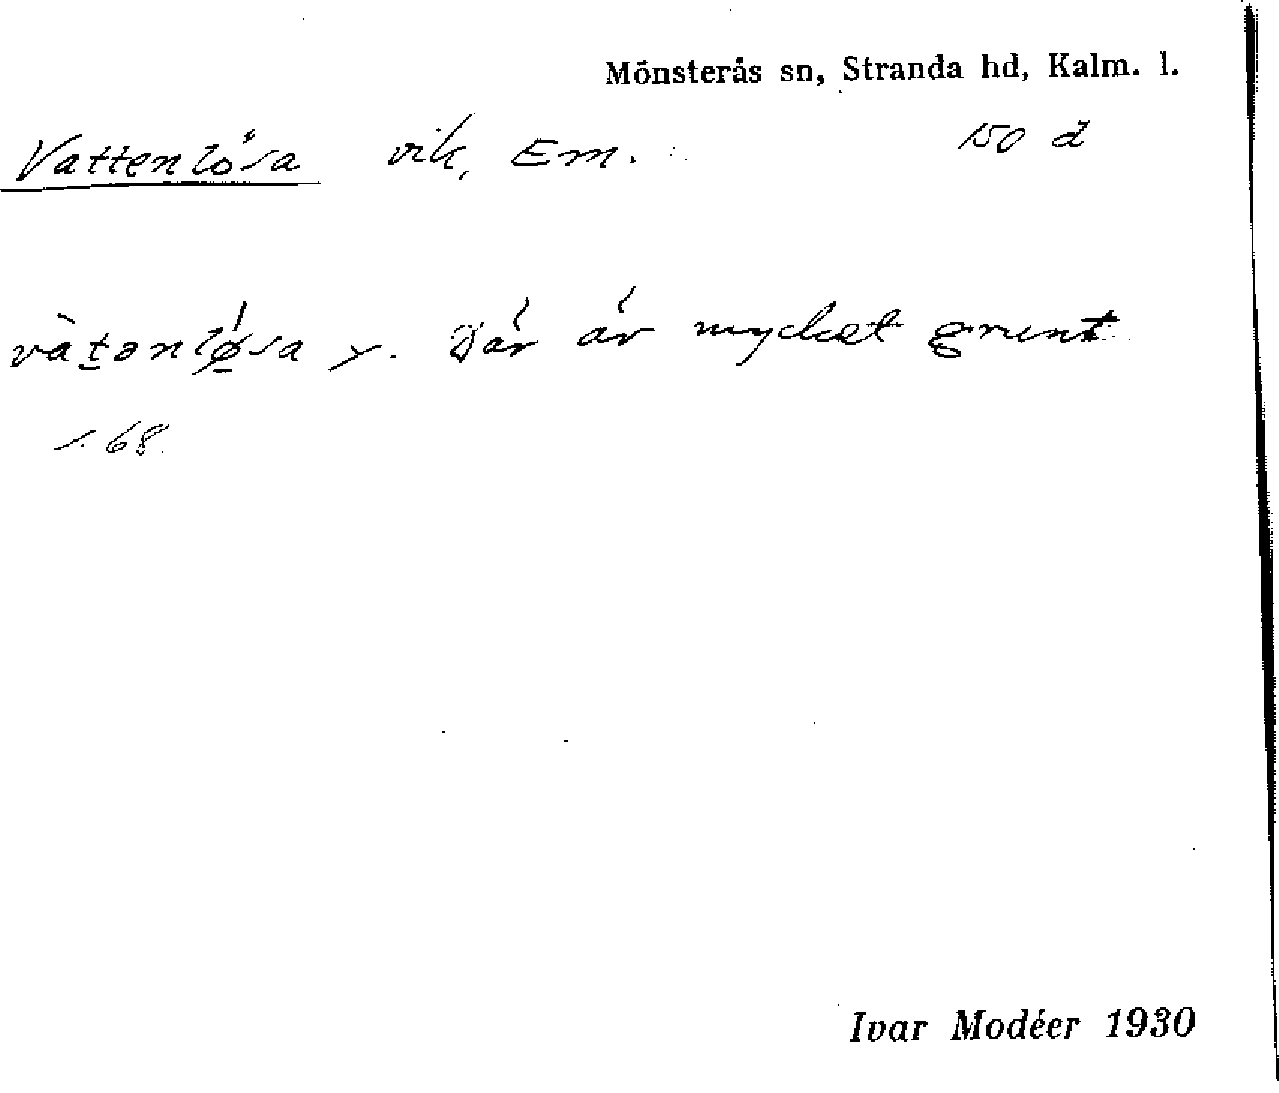 Mönsterås sn, Stranda hd, Kalm. l.
Vattenlösa vik, Em. 150 d
và̀tənlø̗sa y. Där är mycket grunt
s. 68.
Ivar Modéer 1930